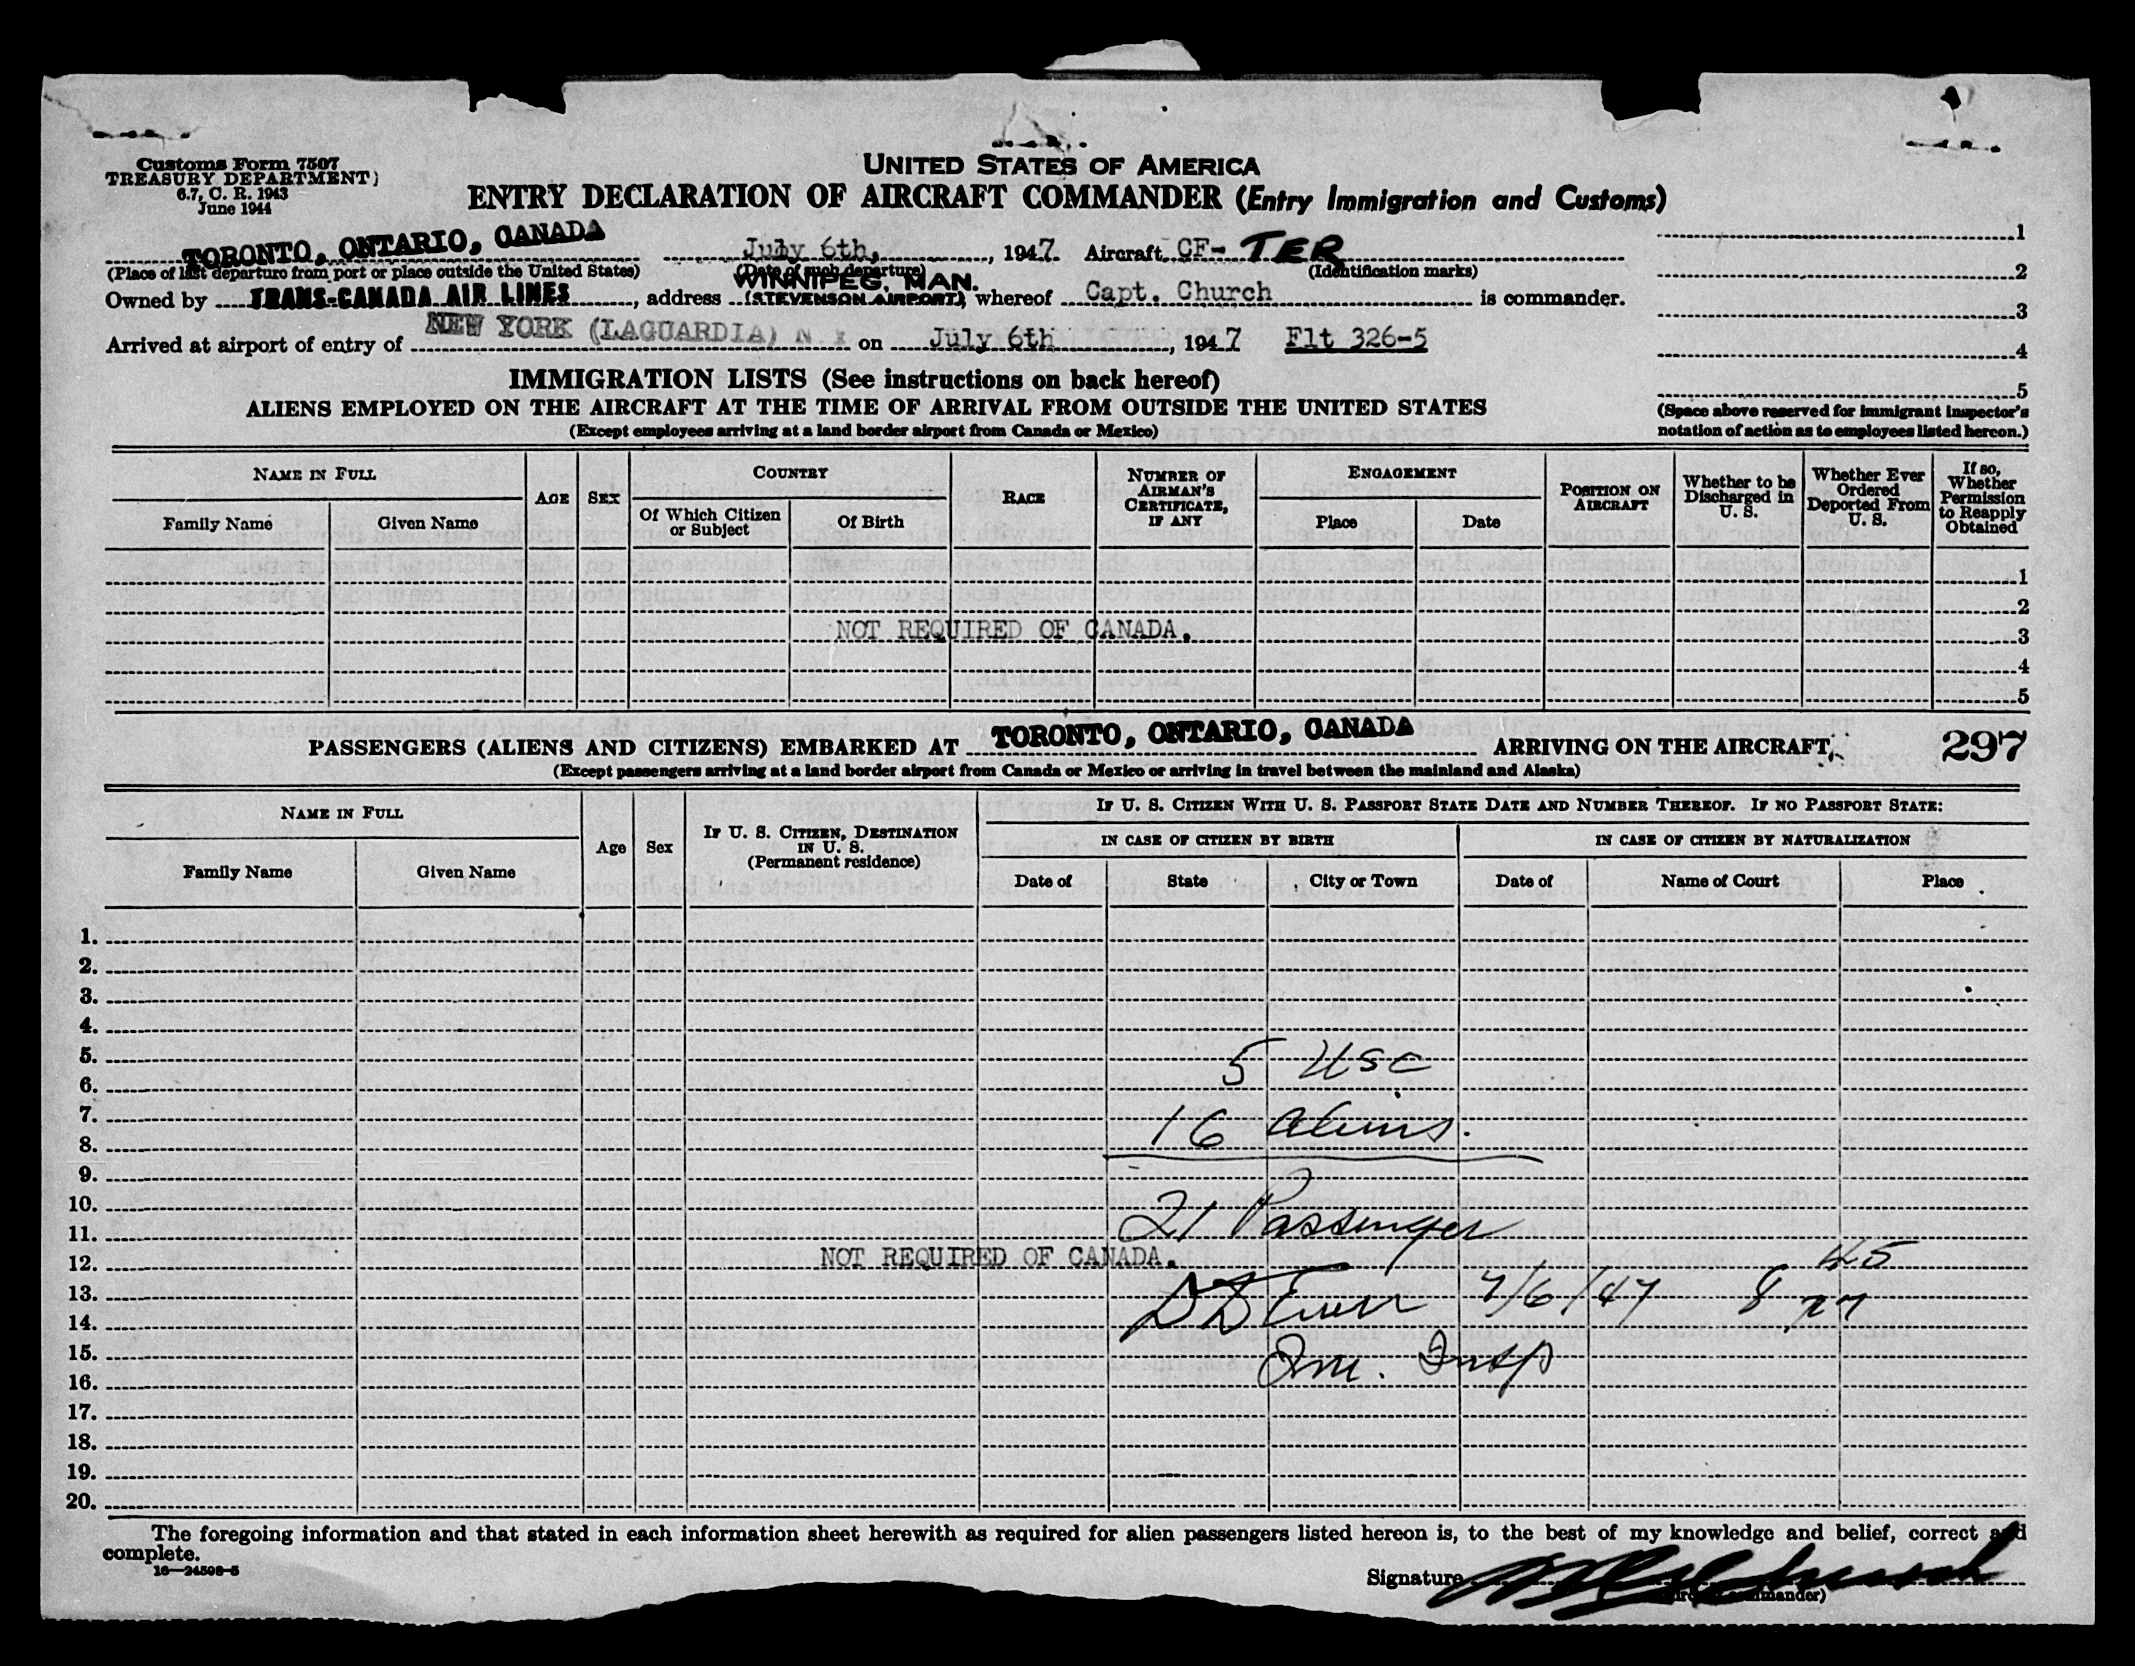 Customs Form 7507
TREASURY DEPARTMENT)
6.7, C. R. 1943
June 1944
UNITED STATES OF AMERICA
ENTRY DECLARATION OF AIRCRAFT COMMANDER (Entry Immigration and Customs)
TORONTO, ONTARIO, CANADA July 6th, , 1947. Aircraft CF- TER
(Place of last departure from port or place outside the United States) (Date of such departure) (Identification marks)
WINNIPEG, MAN.
Owned by TRANS-CANADA AIR LINES, address (STEVENSON AIRPORT), whereof Capt. Church is commander.
Arrived at airport of entry of NEW YORK (LAGUARDIA) N Y on July 6th, 1947 Flt 326-5
1
2
3
4
5
(Space above reserved for immigrant inspector's
notation of action as to employees listed hereon.)
IMMIGRATION LISTS (See instructions on back hereof)
ALIENS EMPLOYED ON THE AIRCRAFT AT THE TIME OF ARRIVAL FROM OUTSIDE THE UNITED STATES
(Except employees arriving at a land border airport from Canada or Mexico)
NAME IN FULL
Family Name Given Name
AGE SEX
COUNTRY
Of Which Citizen or Subject Of Birth
RACE
NUMBER OF AIRMAN'S CERTIFICATE, IF ANY
ENGAGEMENT
Place Date
POSITION ON AIRCRAFT
Whether to be Discharged in U. S.
Whether Ever Ordered Deported From U. S.
If so, Whether Permission to Reapply Obtained
1
2
NOT REQUIRED OF CANADA. 3
4
5
PASSENGERS (ALIENS AND CITIZENS) EMBARKED AT TORONTO, ONTARIO, CANADA ARRIVING ON THE AIRCRAFT, 297
(Except passengers arriving at a land border airport from Canada or Mexico or arriving in travel between the mainland and Alaska)
NAME IN FULL
Family Name Given Name
Age Sex
IF U. S. CITIZEN, DESTINATION IN U. S.
(Permanent residence)
IF U. S. CITIZEN WITH U. S. PASSPORT STATE DATE AND NUMBER THEREOF. IF NO PASSPORT STATE:
IN CASE OF CITIZEN BY BIRTH IN CASE OF CITIZEN BY NATURALIZATION
Date of State City or Town Date of Name of Court Place
1.
2.
3.
4.
5. 5 USC
6.
7. 16 aliens.
8.
9.
10.
11. 21 Passenger
12. NOT REQUIRED OF CANADA. 45
13. 7/6/47 8
14.
15. Imm. Insp
16.
17.
18.
19.
20.
The foregoing information and that stated in each information sheet herewith as required for alien passengers listed hereon is, to the best of my knowledge and belief, correct and
complete.
16—24508-5
Signature